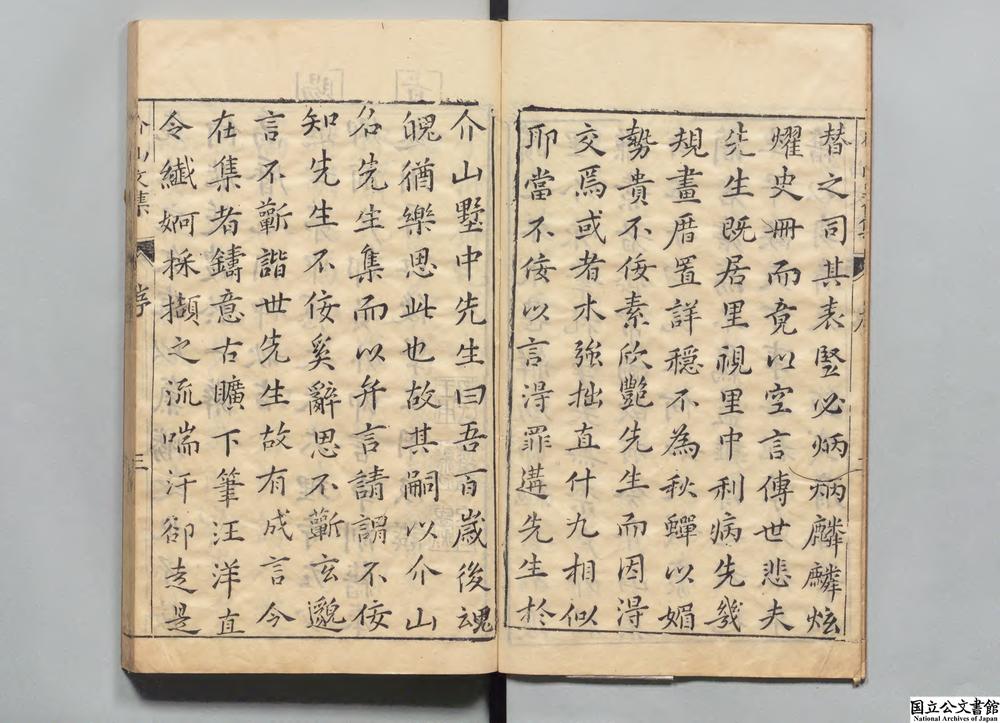 替之司其表豎必炳炳麟麟炫
燿史冊而竟以空言傳世悲夫
先生既居里視里中利病先幾
規畫厝置詳穩不為秋蟬以媚
勢貴不佞素欣艷先生而因淂
交焉或者木強拙直什九相似
耶當不佞以言淂罪遘先生於
介山墅中先生曰吾百歲後魂
魄猶樂思此也故其嗣以介山
名先生集而以弁言請謂不佞
知先生不佞奚辭思不蘄玄邈
言不蘄諧世先生故有成言今
在集者鑄意古曠下筆汪洋直
令纖婀採擷之流喘汗卻走是
介山文集
序
三
国立公文書館
National Archives of Japan